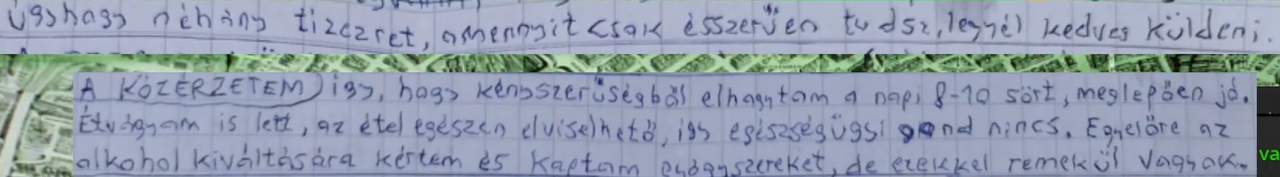 úgyhogy néhány tízezret, amennyit csak ésszerűen tudsz, legyél kedves küldeni.
A KÖZÉRZETEM így, hogy kényszerűségből elhagytam a napi 8-10 sört, meglepően jó.
Étvágyam is lett, az étel egészen elviselhető, így egészségügyi gond nincs. Egyelőre az
alkohol kiváltására kértem és kaptam gyógyszereket, de ezekkel remekül vagyok.
va